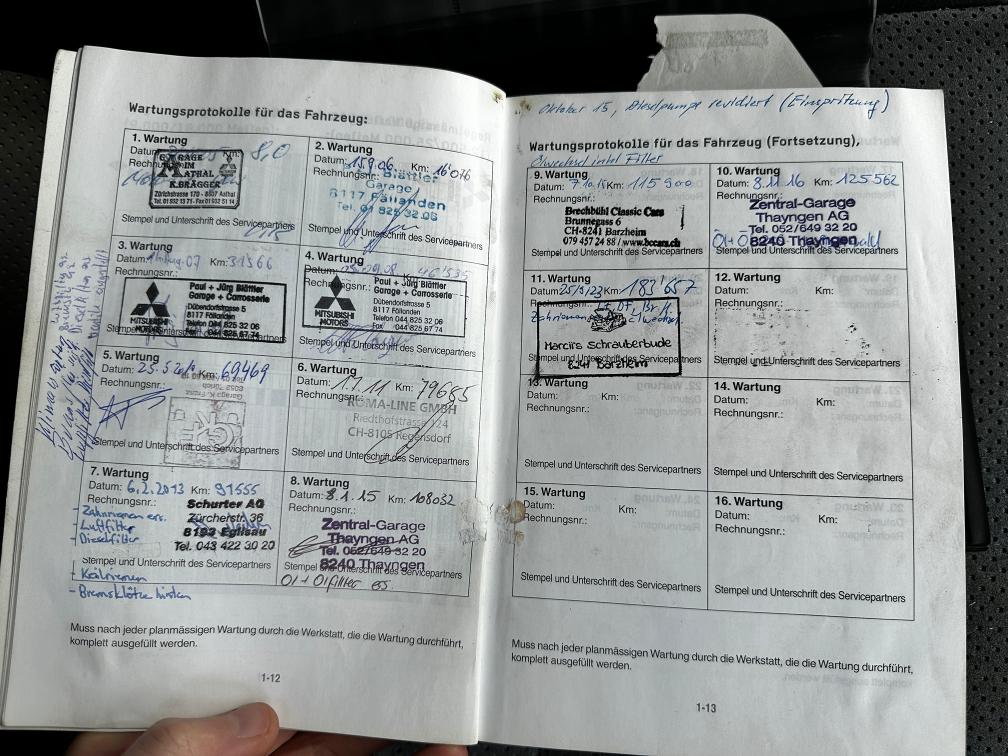 Wartungsprotokolle für das Fahrzeug:
1. Wartung
Datum: 8,0
Rechnungsnr.:
GARAGE
IM
AATHAL
K. BRÄGGER
Zürichstrasse 170 - 8607 Aathal
Tel. 01 932 13 71 - Fax 01 932 51 14
Stempel und Unterschrift des Servicepartners
2. Wartung
Datum: 15.9.06 Km: 16'076
Rechnungsnr.:
Blättler
Garage
8117 Fällanden
Tel. 01 825 32 06
Stempel und Unterschrift des Servicepartners
3. Wartung
Datum: 07 Km: 31366
Rechnungsnr.:
MITSUBISHI
MOTORS
Paul + Jürg Blättler
Garage + Carrosserie
Dübendorfstrasse 5
8117 Fällanden
Telefon 044 825 32 06
Telefax 044 825 67 74
Stempel und Unterschrift des Servicepartners
4. Wartung
Datum: 08 Km:
Rechnungsnr.:
MITSUBISHI
MOTORS
Paul + Jürg Blättler
Garage + Carrosserie
Dübendorfstrasse 5
8117 Fällanden
Telefon 044 825 32 06
Telefax 044 825 67 74
Stempel und Unterschrift des Servicepartners
5. Wartung
Datum: 25.5 Km: 69469
Rechnungsnr.:
Stempel und Unterschrift des Servicepartners
6. Wartung
Datum: 1.7.11 Km: 79685
Rechnungsnr.:
ROMA-LINE GMBH
Riedthofstrasse 124
CH-8105 Regensdorf
Stempel und Unterschrift des Servicepartners
7. Wartung
Datum: 6.2.2013 Km: 91555
Rechnungsnr.:
- Zahnriemen ers.
- Luftfilter
- Dieselfilter
Schurter AG
Zürcherstr. 36
8193 Eglisau
Tel. 043 422 30 20
Stempel und Unterschrift des Servicepartners
- Keilriemen
- Bremsklötze hinten
8. Wartung
Datum: 8.1.15 Km: 108032
Rechnungsnr.:
Zentral-Garage
Thayngen AG
Tel. 052/649 32 20
8240 Thayngen
Stempel und Unterschrift des Servicepartners
Öl + Ölfilter es.
Muss nach jeder planmässigen Wartung durch die Werkstatt, die die Wartung durchführt,
komplett ausgefüllt werden.
1-12
Oktober 15, Dieselpumpe revidiert (Einspritzung)
Wartungsprotokolle für das Fahrzeug (Fortsetzung),
Ölwechsel inkl Filter
9. Wartung
Datum: 7.10.15 Km: 115900
Rechnungsnr.:
Brechbühl Classic Cars
Brunnegass 6
CH-8241 Barzheim
079 457 24 88 / www.bccars.ch
Stempel und Unterschrift des Servicepartners
10. Wartung
Datum: 8.11.16 Km: 125562
Rechnungsnr.:
Zentral-Garage
Thayngen AG
Tel. 052/649 32 20
8240 Thayngen
Stempel und Unterschrift des Servicepartners
11. Wartung
Datum: 25/9/23 Km: 183657
Rechnungsnr.:
Zahnriemen Ölwechsel
Marcis Schrauberbude
8241 Barzheim
Stempel und Unterschrift des Servicepartners
12. Wartung
Datum: Km:
Rechnungsnr.:
Stempel und Unterschrift des Servicepartners
13. Wartung
Datum: Km:
Rechnungsnr.:
Stempel und Unterschrift des Servicepartners
14. Wartung
Datum: Km:
Rechnungsnr.:
Stempel und Unterschrift des Servicepartners
15. Wartung
Datum: Km:
Rechnungsnr.:
Stempel und Unterschrift des Servicepartners
16. Wartung
Datum: Km:
Rechnungsnr.:
Stempel und Unterschrift des Servicepartners
Muss nach jeder planmässigen Wartung durch die Werkstatt, die die Wartung durchführt,
komplett ausgefüllt werden.
1-13